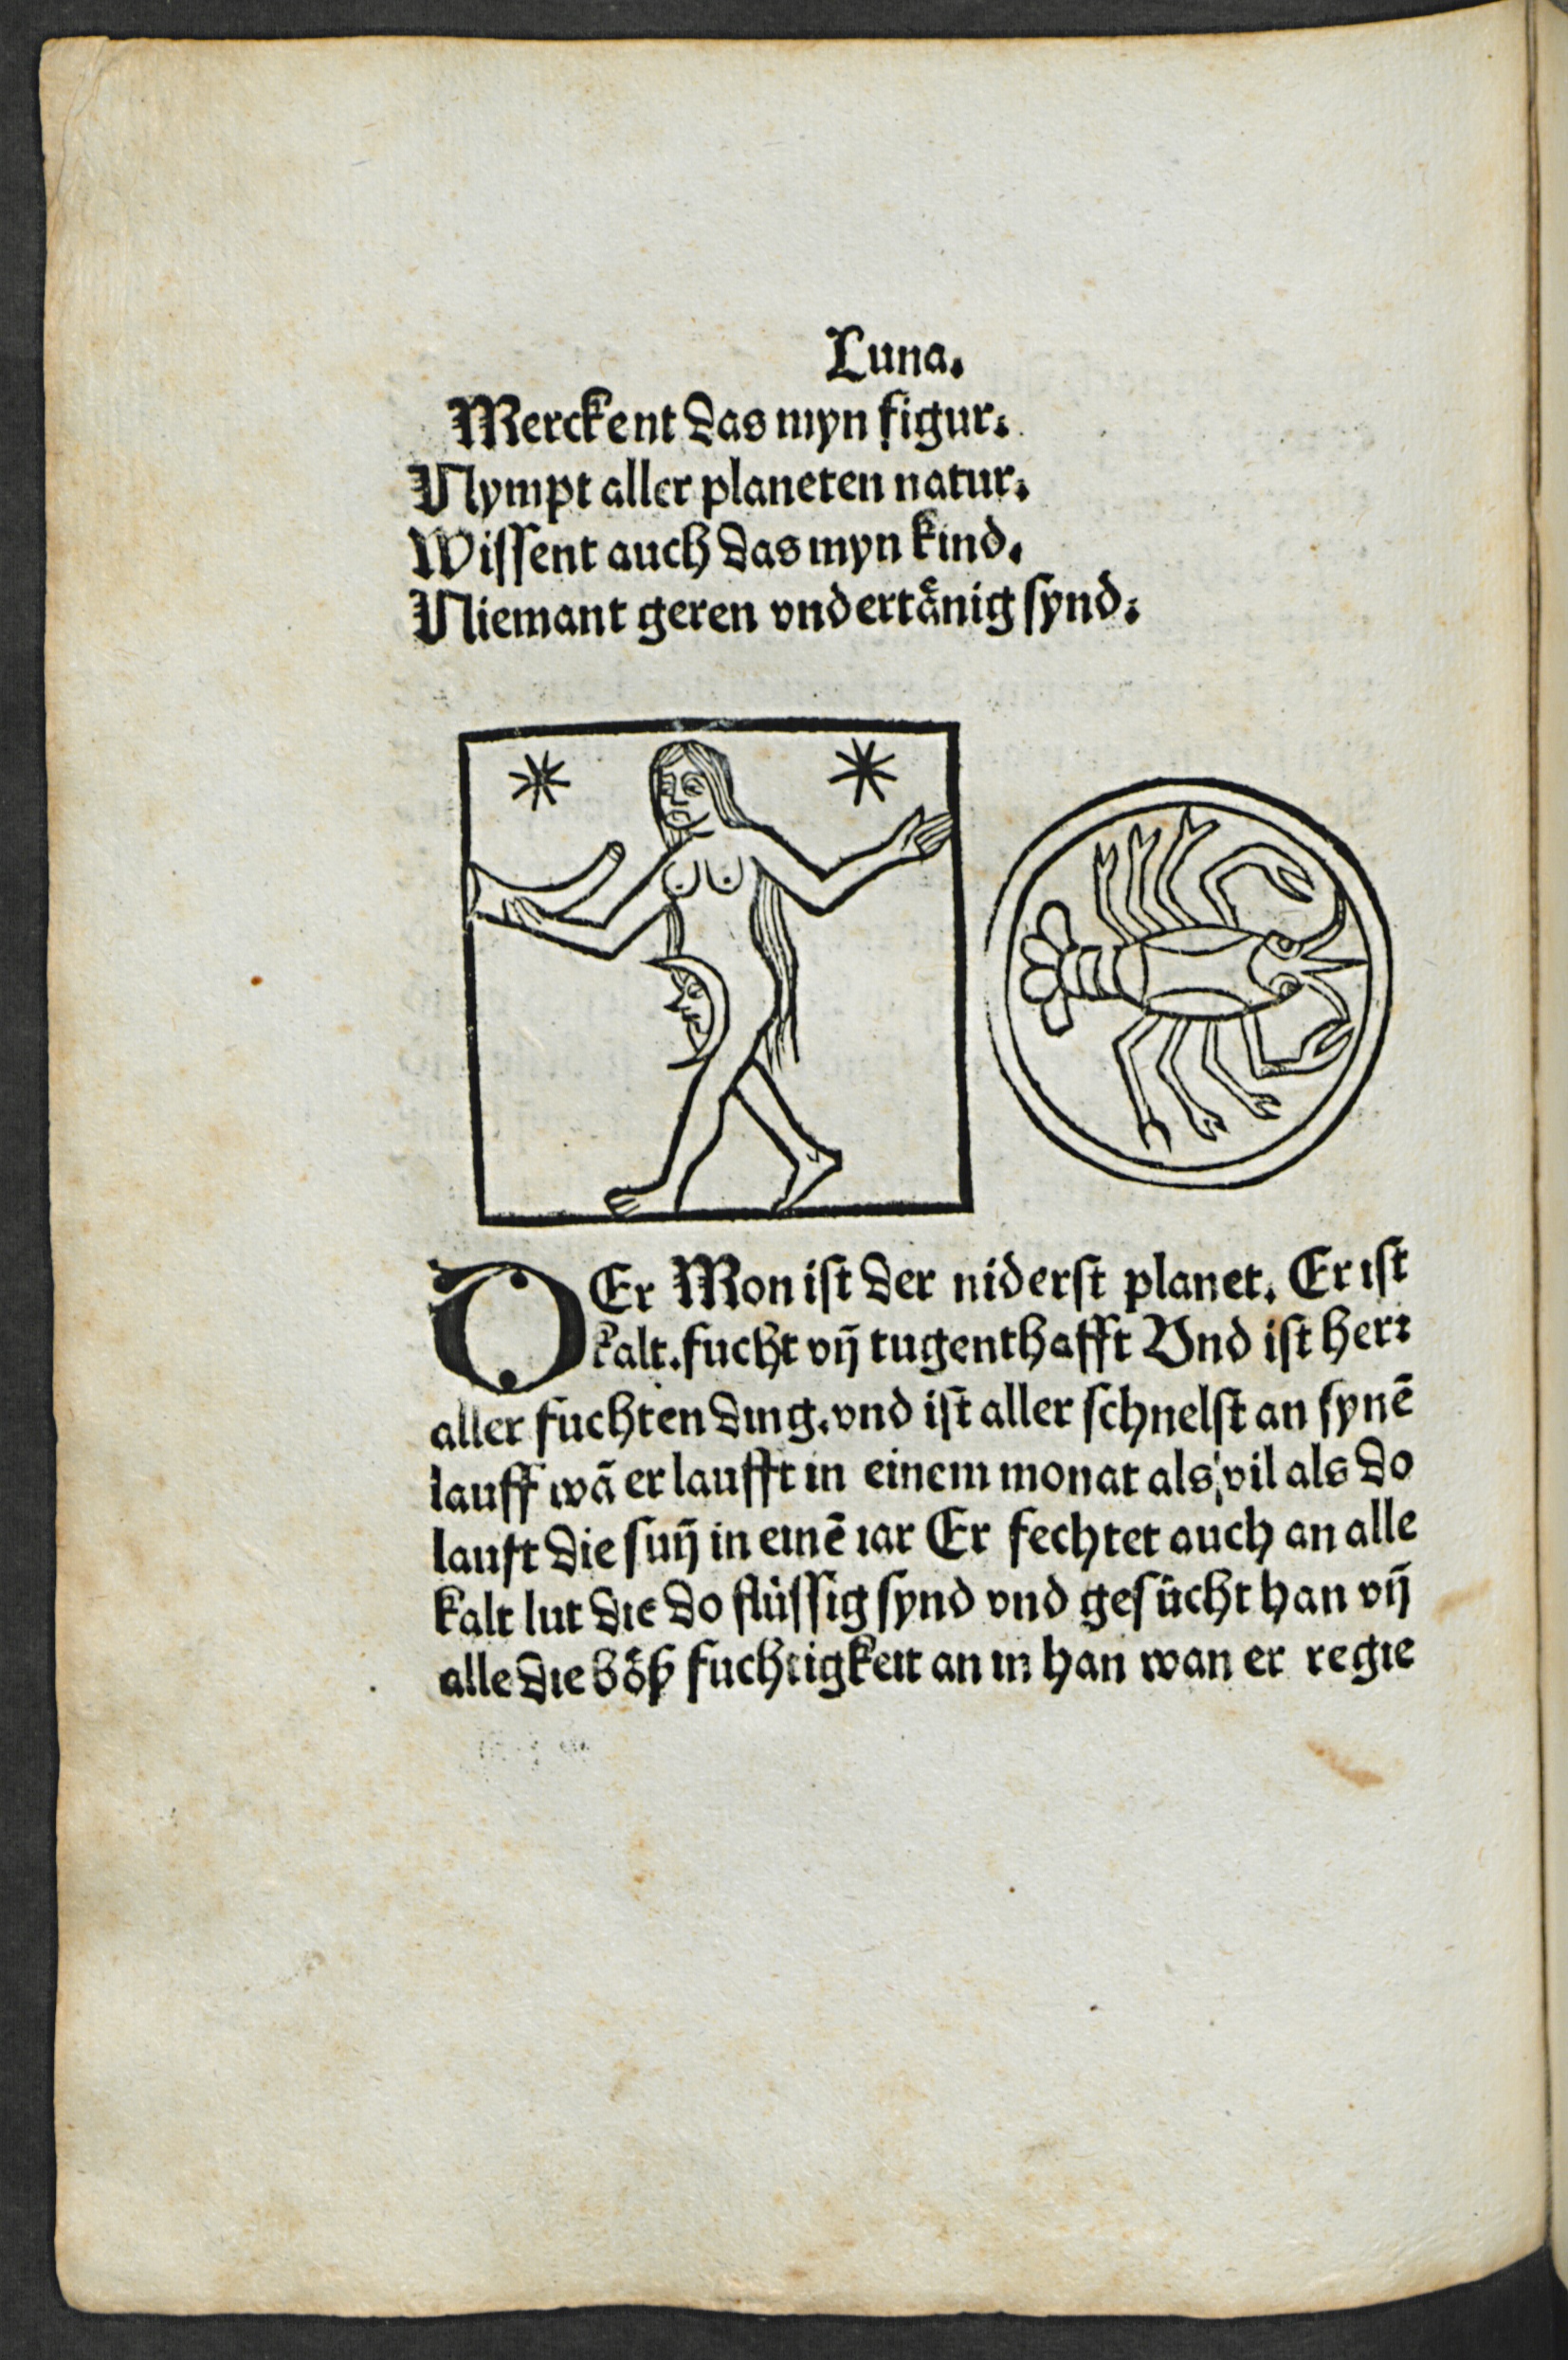 Luna.
Merckent das myn figur.
Nympt aller planeten natur.
Wissent auch das myn kind.
Niemant geren vndertånig synd.
DEr Mon ist der niderst planet. Er ist
kalt. fucht vn̄ tugenthafft Vnd ist herꝛ
aller fuchten ding. vnd ist aller schnelst an synē
lauff wā er laufft in einem monat als vil als do
lauft die sun̄ in einē iar Er fechtet auch an alle
kalt lut die do flüssig synd vnd gesücht han vn̄
alle die böß fuchtigkeit an in han wan er regie